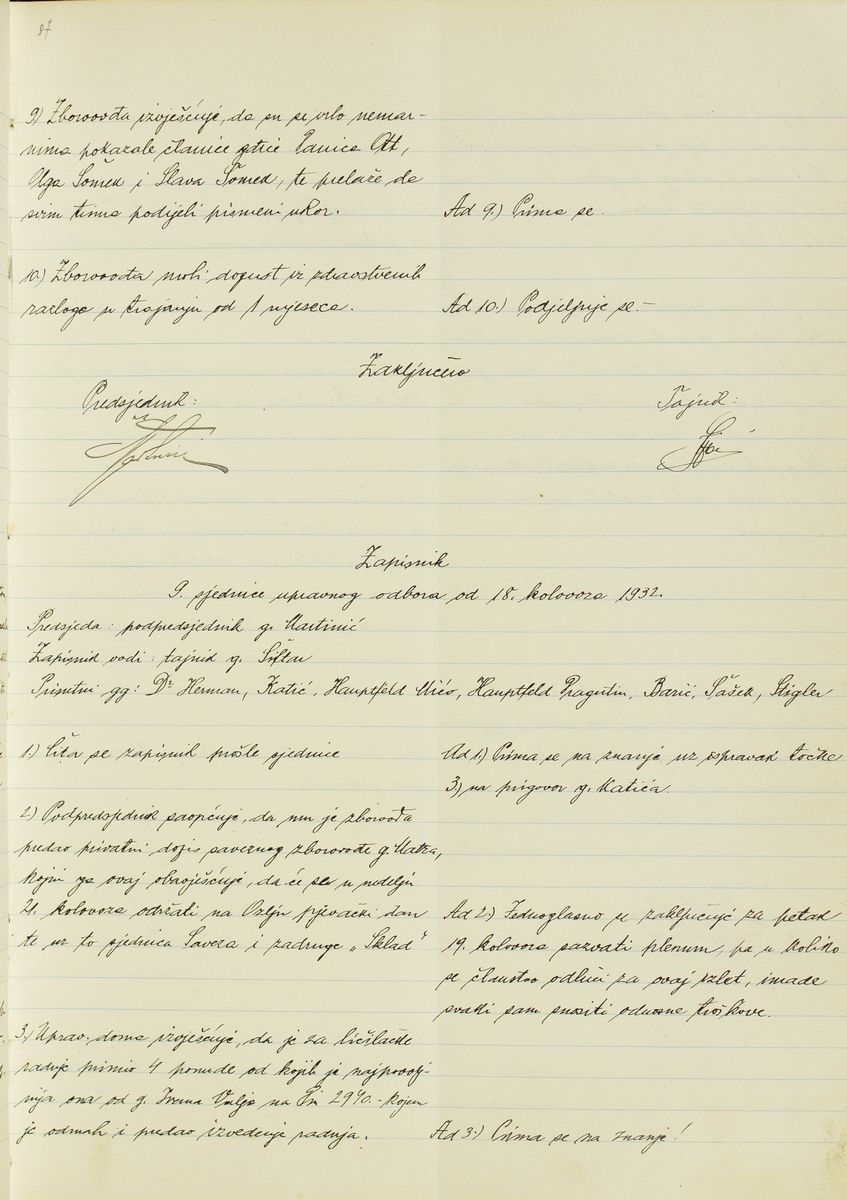 87
9.) Zborovođa izvješćuje, da su se vrlo nemar-
nima pokazale članice gdice Danica Ott,
Olga Šomek i Slava Šomek, te prelaže da
svim tima podijeli pismeni ukor.
Ad 9.) Prima se.
10.) Zborovođa moli dopust iz zdravstvenih
razloga u trajanju od 1 mjeseca.
Ad 10.) Podjeljuje se.-
Zaključeno
Predsjednik:
Tajnik:
Zapisnik
9. sjednice upravnog odbora od 18. kolovoza 1932.
Predsjeda: podpredsjednik g. Martinić
Zapisnik vodi: tajnik g. Šiftar
Prisutni gg: Dr. Herman, Katić, Hauptfeld Mićo, Hauptfeld Dragutin, Barić, Šašek, Stigler
1.) Čita se zapisnik prošle sjednice
Ad 1.) Prima se na znanje uz ispravak točke
3.) na prigovor g. Katića.
2.) Podpredsjednik saopćuje, da mu je zborovođa
predao privatni dopis saveznog zborovođe g. Matza,
kojim ga ovaj obavješćuje, da će se u nedelju
21. kolovoza održati na Ozlju pjevački dan
te uz to sjednica Saveza i zadruge „Sklad"
Ad 2.) Jednoglasno se zaključuje za petak
19. kolovoza sazvati plenum, pa u koliko
se članstvo odluči za ovaj izlet, imade
svaki sam snositi odnosne troškove.
3.) Uprav. doma izvješćuje, da je za ličilačke
radnje primio 4 ponude od kojih je najpovolj-
nija ona od g. Ivana na Din 2940.- kojem
je odmah i predao izvedenje radnja.
Ad 3.) Prima se na znanje!